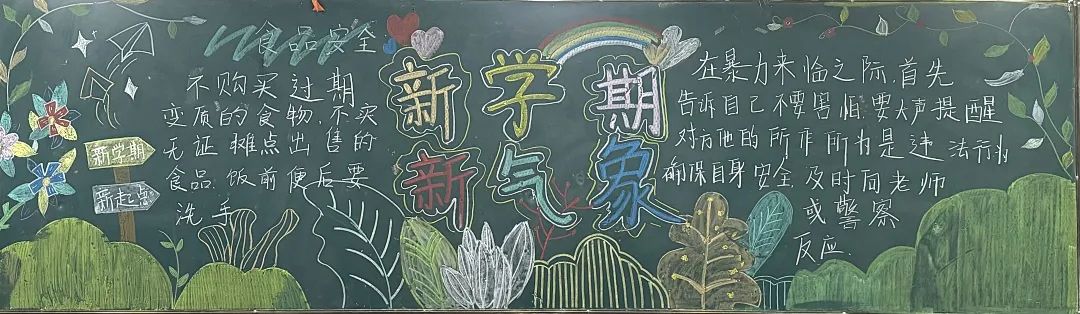 食品安全
不购买过期
变质的食物，不买
无证摊点出售的
食品，饭前便后要
洗手
新学期
新起点
新学期
新气象
在暴力来临之际，首先
告诉自己不要害怕，要大声提醒
对方他的所作所为是违法行为
确保自身安全，及时向老师
或警察
反应.